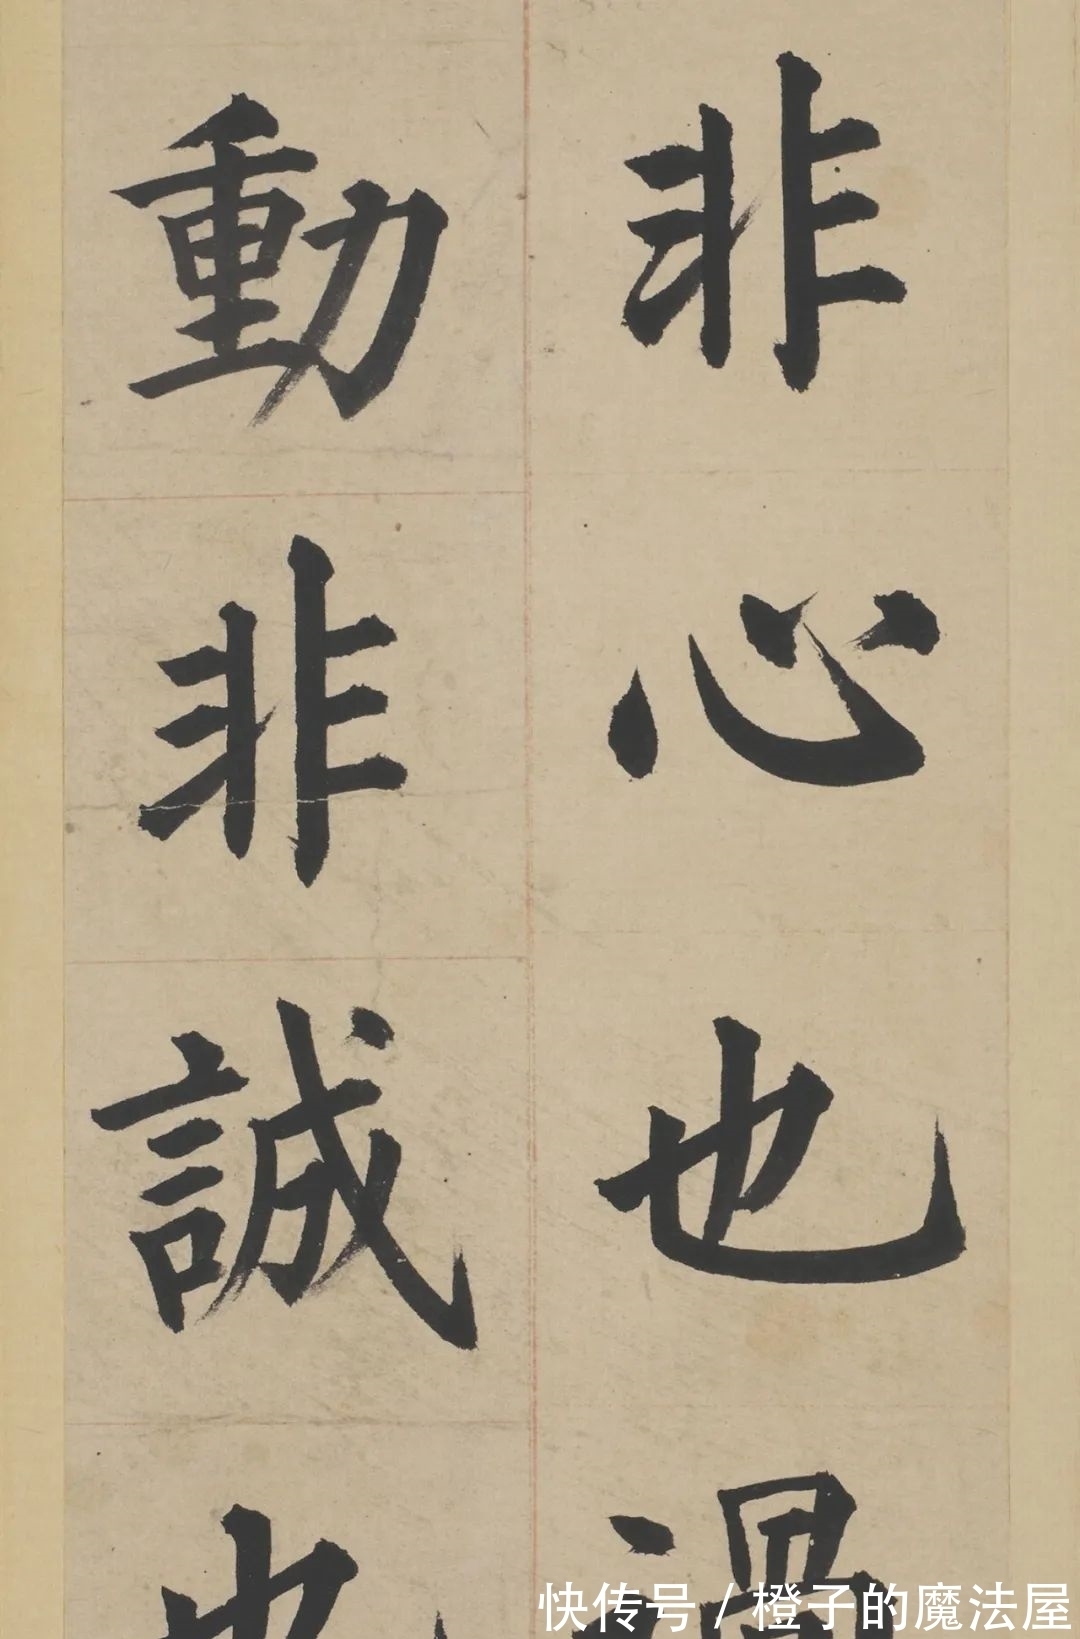 非心也過
動非誠也
快传号/橙子的魔法屋